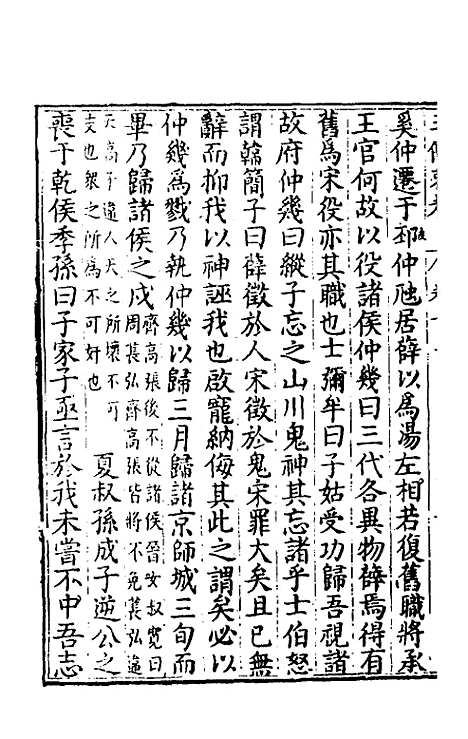 奚仲遷于邳仲虺居薛以爲湯左相若復舊職將承
王官何故以役諸侯仲幾曰三代各異物薛焉得有
舊爲宋役亦其職也士彌牟曰子姑受功歸吾視諸
故府仲幾曰縱子忘之山川鬼神其忘諸乎士伯怒
謂韓簡子曰薛徵於人宋徵於鬼宋罪大矣且已無
辭而抑我以神誣我也啟寵納侮其此之謂矣必以
仲幾爲戮乃執仲幾以歸三月歸諸京師城三旬而
畢乃歸諸侯之戍齊高張後不從諸侯晉女叔寬曰
周萇弘齊高張皆將不免萇弘違
天高子違人天之所壞不可
支也衆之所爲不可奸也
夏叔孫成子逆公之
喪于乾侯季孫曰子家子亟言於我未嘗不中吾志